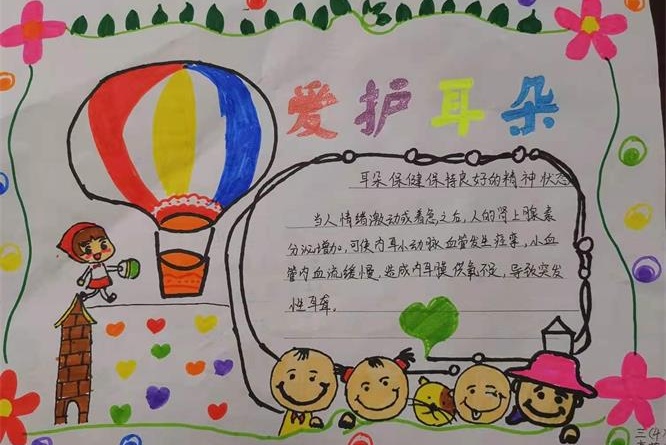 爱护耳朵
耳朵保健保持良好的精神状态
当人情绪激动或着急之后，人的肾上腺素
分泌增加，可使内耳小动脉血管发生痉挛，小血
管内血流缓慢，造成内耳供氧不足，导致突发
性耳聋。
三(4)